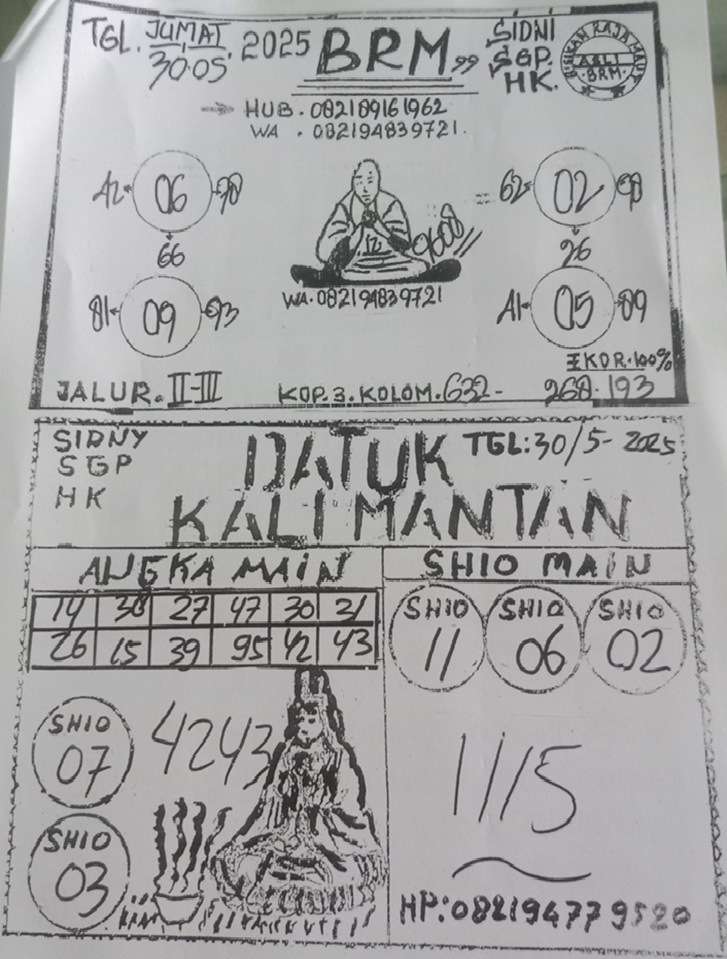 TGL. JUMAT 2025 BRM" SIDNI
30.05 SGP.
HK.
ASLI
BRM.
HUB. 082189161962
WA. 082194839721.
42 06
66
81 09 93
12
9608
WA. 082194839721
62 02
26
A1 05 89
EKOR. 100%
JALUR. II-III KOP. 3. KOLOM. 632- 268. 193
SIDNY
SGP
HK
DATUK
KALIMANTAN
TGL: 30/5- 2025
ANGKA MAIN
14 30 27 47 30 31
26 15 39 95 42 43
SHIO MAIN
SHIO SHIO SHIO
11 06 02
SHIO
07
4243
SHIO
03
1115
HP: 082194779520